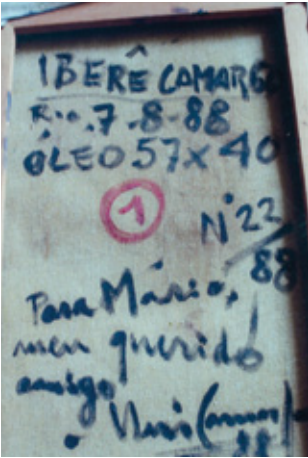 IBERÊ CAMARGO
Rio.7-8-88
ÓLEO 57X40
1
Nº22
88
Para Mário,
meu querido
amigo
88